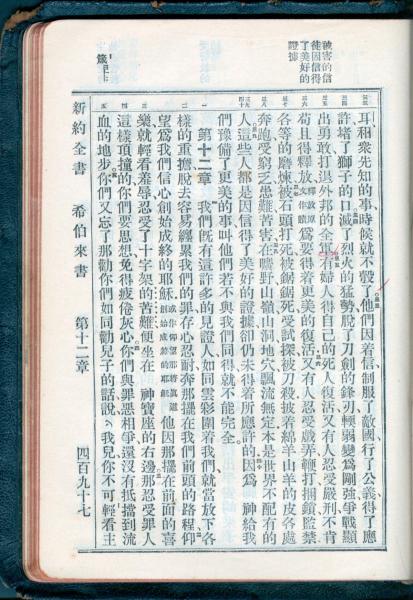 被害的信
徒因信得
了美好的
證據
耳和衆先知的事時候就不彀了他們因着信制服了敵國行了公義得了應
許堵了獅子的口滅了烈火的猛勢脫了刀劍的鋒刃輭弱變爲剛強爭戰顯
出勇敢打退外邦的全軍有婦人得自己的死人復活又有人忍受嚴刑不肯
苟且得釋放釋放原文作贖爲要得着更美的復活又有人忍受戲弄鞭打捆鎖監禁
各等的磨煉被石頭打死被鋸鋸死受試探被刀殺披着綿羊山羊的皮各處
奔跑受窮乏患難苦害在曠野山嶺山洞地穴飄流無定本是世界不配有的
人這些人都是因信得了美好的證據卻仍未得着所應許的因爲 神給我
們豫備了更美的事叫他們若不與我們同得就不能完全
第十二章 我們旣有這許多的見證人如同雲彩圍着我們就當放下各
樣的重擔脫去容易纏累我們的罪存心忍耐奔那擺在我們前頭的路程仰
望爲我們信心創始成終的耶穌或作仰望那將眞道創始成終的耶穌他因那擺在前面的喜
樂就輕看羞辱忍受了十字架的苦難便坐在 神寶座的右邊那忍受罪人
這樣頂撞的你們要思想免得疲倦灰心你們與罪惡相爭還沒有抵擋到流
血的地步你們又忘了那勸你們如同勸兒子的話說我兒你不可輕看主
新約全書 希伯來書 第十二章 四百九十七